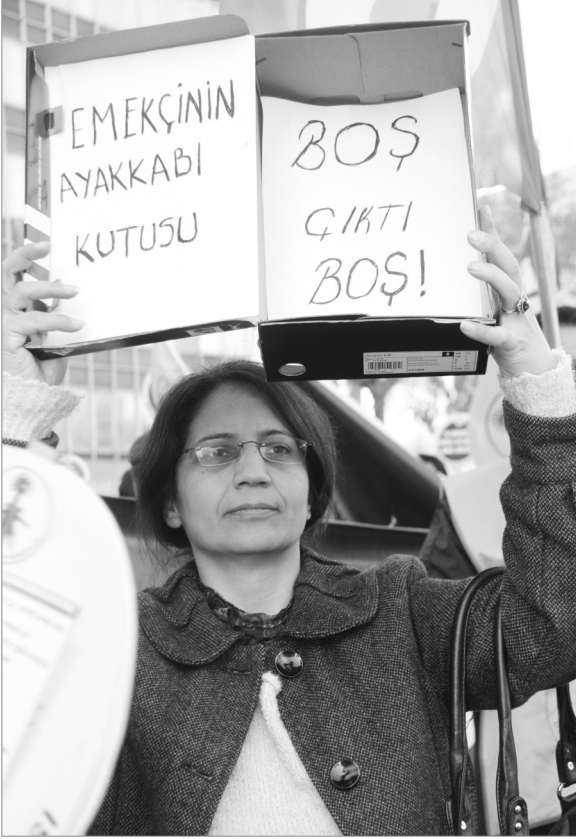 EMEKÇİNİN
AYAKKABI
KUTUSU
BOŞ
ÇIKTI
BOŞ!